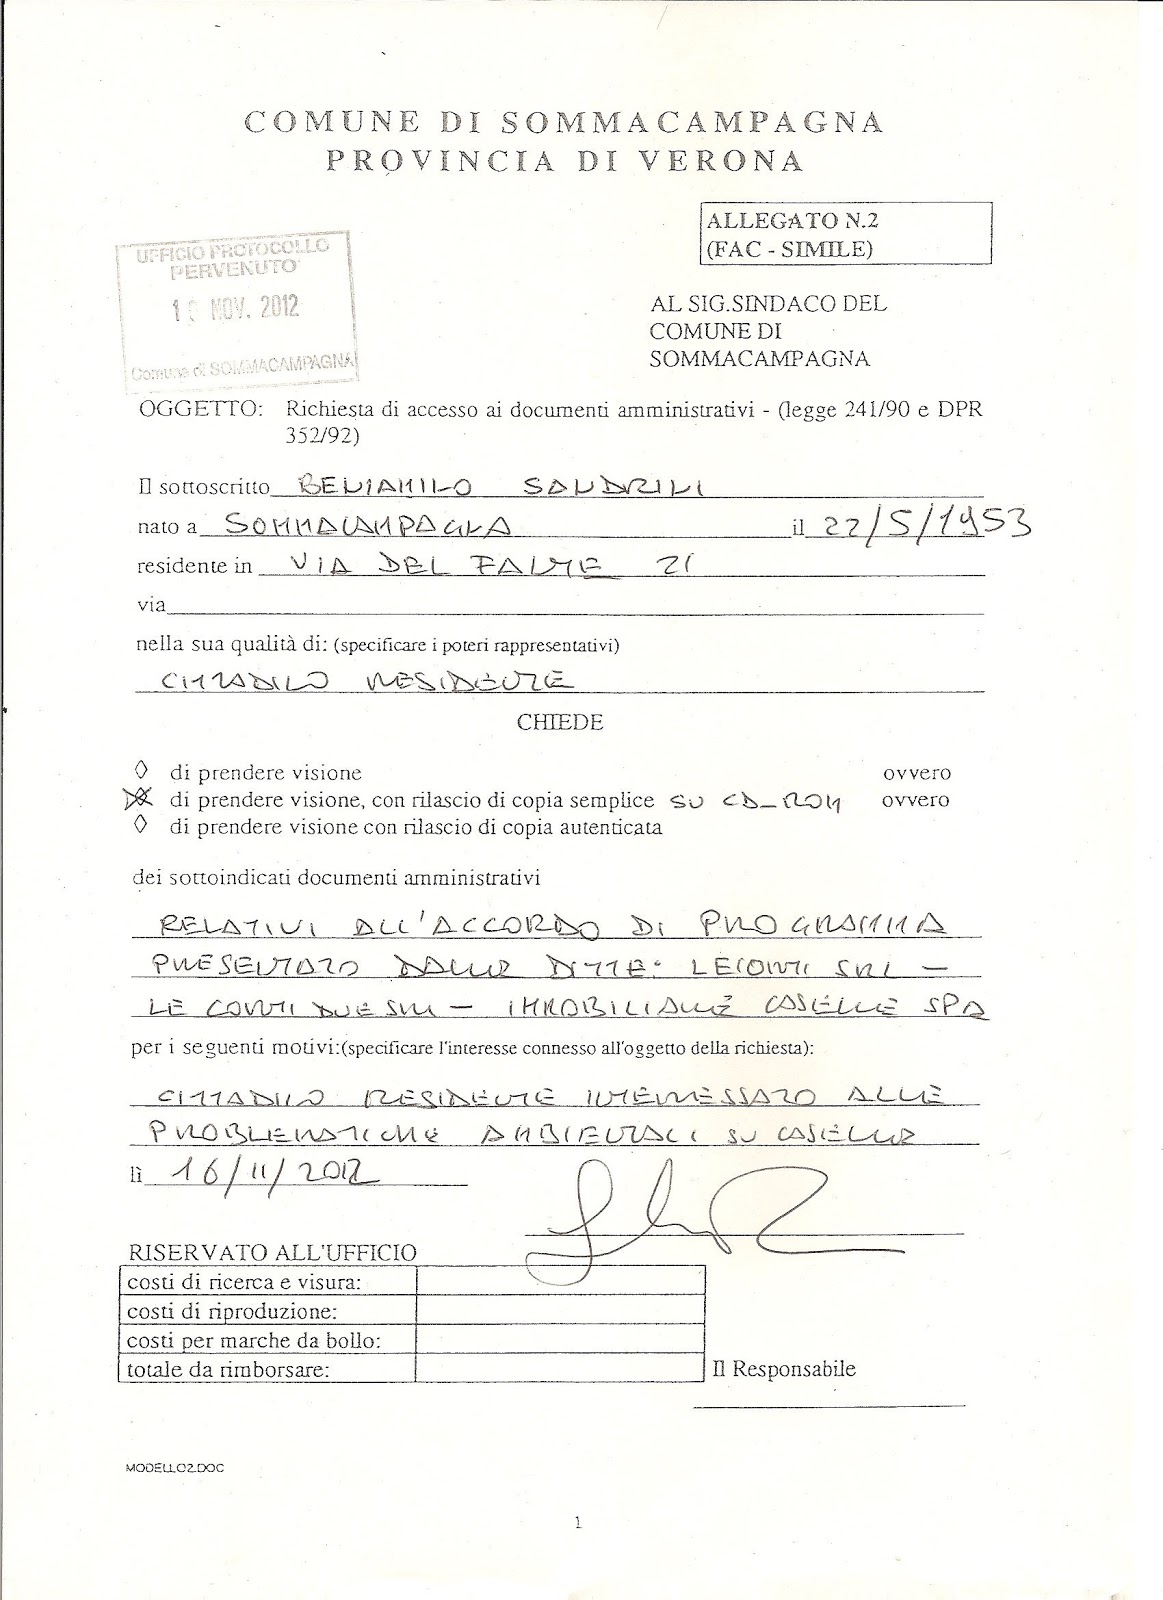 COMUNE DI SOMMACAMPAGNA
PROVINCIA DI VERONA
ALLEGATO N.2
(FAC - SIMILE)
UFFICIO PROTOCOLLO
PERVENUTO
NOV. 2012
Comune di SOMMACAMPAGNA
AL SIG.SINDACO DEL
COMUNE DI
SOMMACAMPAGNA
OGGETTO: Richiesta di accesso ai documenti amministrativi - (legge 241/90 e DPR
352/92)
Il sottoscritto BENIAMINO SANDRINI
nato a SOMMACAMPAGNA il 22/5/1953
residente in VIA DEL FANTE 21
via
nella sua qualità di: (specificare i poteri rappresentativi)
CITTADINO RESIDENTE
CHIEDE
◊ di prendere visione ovvero
◊ di prendere visione, con rilascio di copia semplice SU CD-ROM ovvero
◊ di prendere visione con rilascio di copia autenticata
dei sottoindicati documenti amministrativi
RELATIVI ALL'ACCORDO DI PROGRAMMA
PRESENTATO DALLE DITTE: LECONTI SRL -
LE CONTI DUE SRL - IMMOBILIARE CASELLE SPA
per i seguenti motivi:(specificare l'interesse connesso all'oggetto della richiesta):
CITTADINO RESIDENTE INTERESSATO ALLE
PROBLEMATICHE AMBIENTALI SU CASELLE
lì 16/11/2012
RISERVATO ALL'UFFICIO
costi di ricerca e visura:
costi di riproduzione:
costi per marche da bollo:
totale da rimborsare:
Il Responsabile
MODELLO2.DOC
1